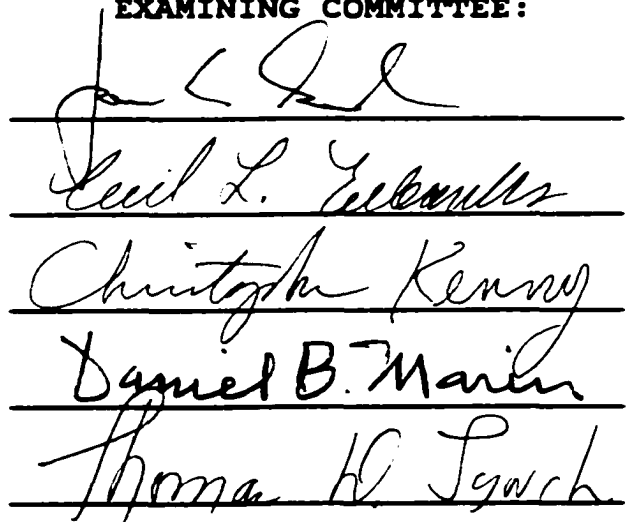 EXAMINING COMMITTEE:
Cecil L. Eubanks
Christopher Kenny
Daniel B. Marin
Thomas D. Lynch